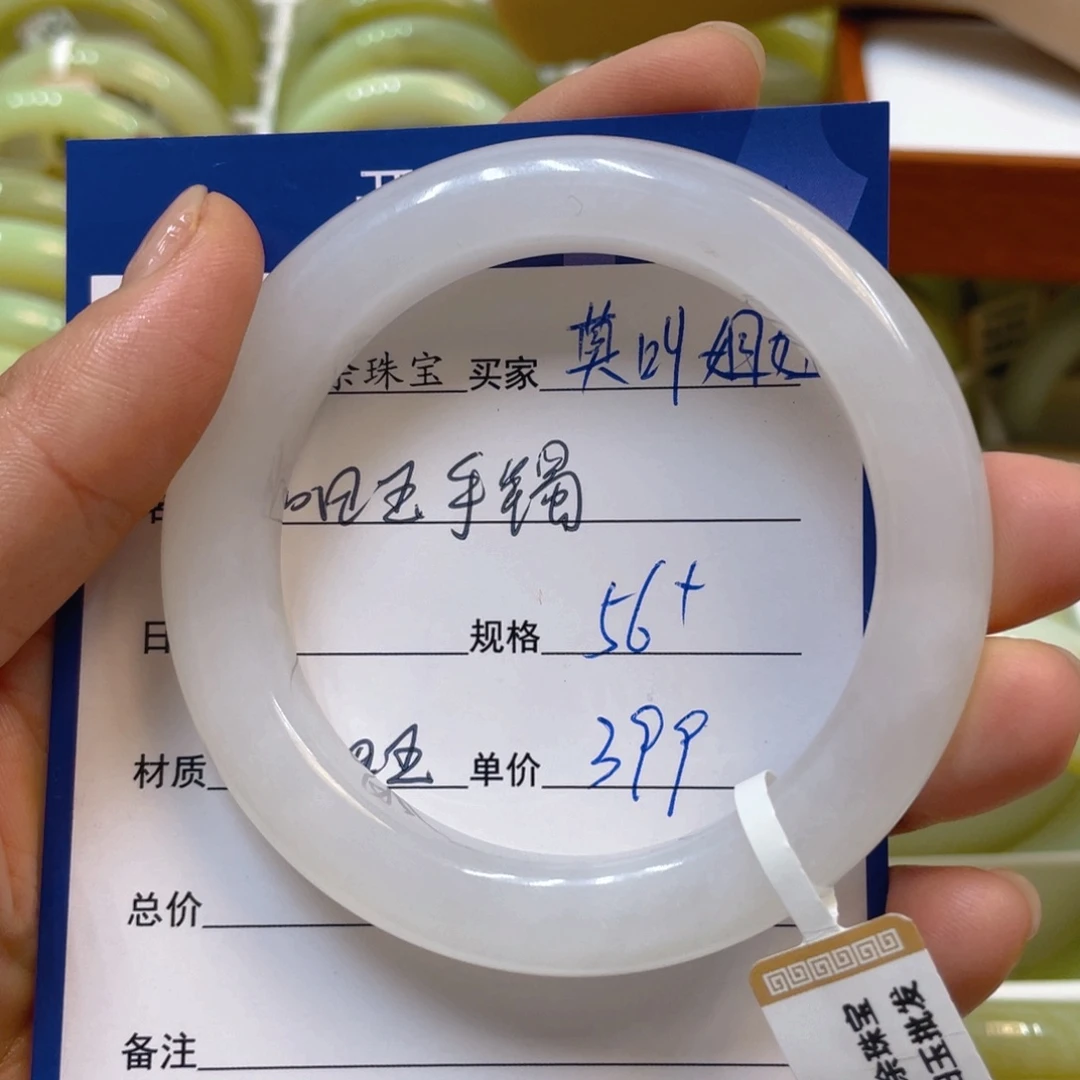 余珠宝 买家 莫叫姐姐
玉手镯
日 规格 56+
材质 单价 399
总价
备注
余珠宝
玉批发